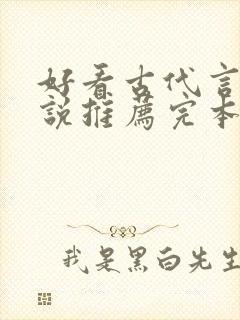 好看古代言
说推薦完本
我是黑白先生